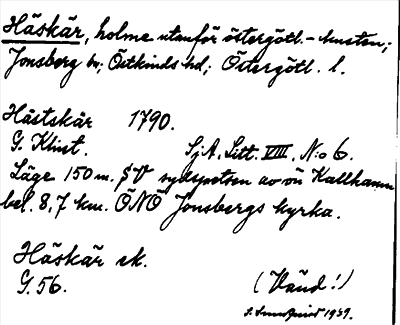 Häskär, holme utanför östergötl.-kusten;
Jonsberg sn; Östkinds hd; Östergötl. l.
Hästskär 1790.
G. Klint. Sj.A, Litt. VIII, N:o 6.
Läge 150 m. SV sydspetsen av ön Kallhamn
bel. 8,7 km. ÖNÖ Jonsbergs kyrka.
Häskär ek.
G.56. (Vänd!)
1939.